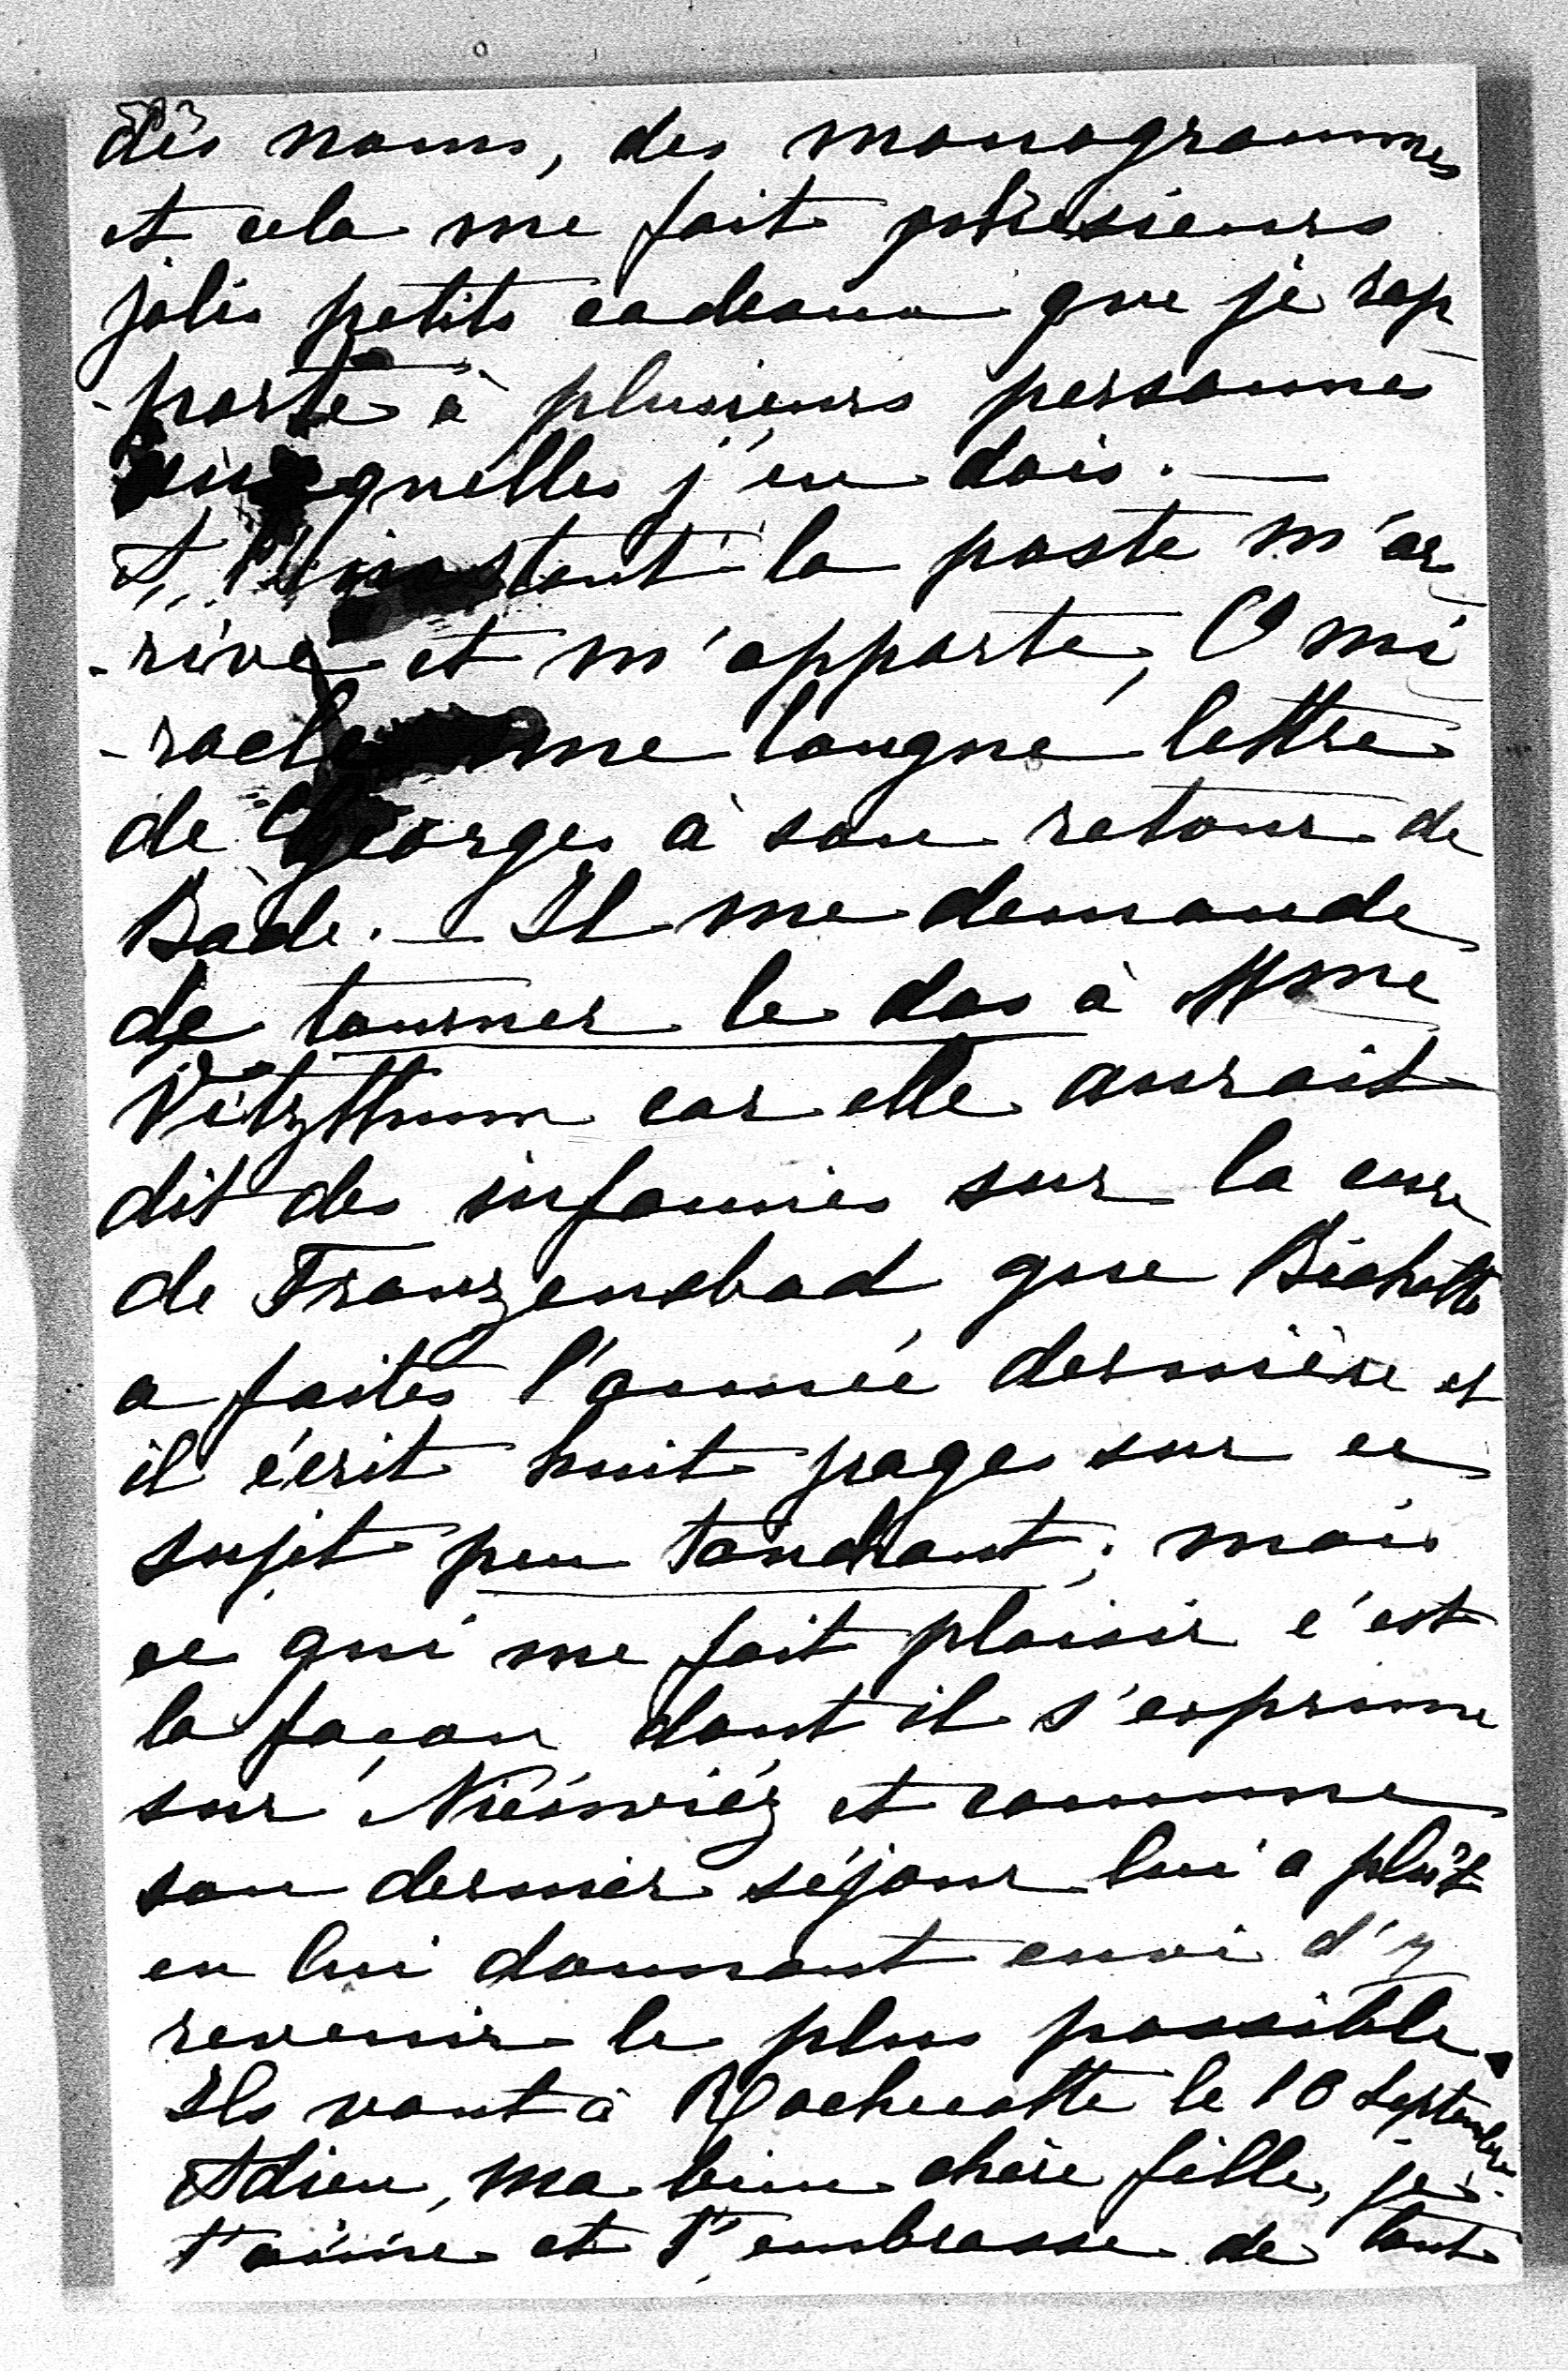 des noms, des monogrammes
et cela me fait plusieurs
jolis petits cadeaux que je rap
-porte à plusieurs personnes
auxquelles j'en dois. —
A l'instant la poste m'ar
-rive et m'apporte, O mi
-racle une longue lettre
de Georges à son retour de
Bade. — Il me demande
de tourner le dos à Mme
Vitzthum car elle aurait
dit des infamies sur la cure
de Franzensbad que Bichette
a faites l'année dernière et
il écrit huit pages sur ce
sujet peu tondrant; mais
ce qui me fait plaisir c'est
la façon dont il s'exprime
sur Nieświéz et comme
son dernier séjour lui a plût
en lui donnant envi d'y
revenir le plus possible.
Ils vont à Rochecotte le 10 Septembre.
Adieu, ma bien chère fille, je
t'aime et t'embrasse de tout